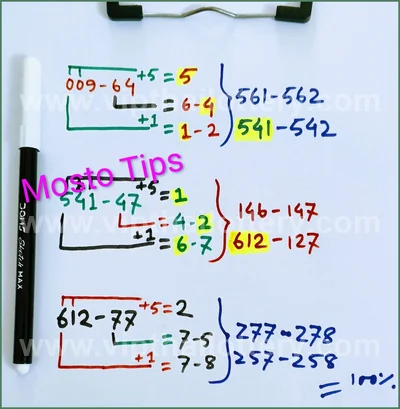 +5 = 5
009-64
= 6-4
+1 = 1-2
561-562
541-542
Mosto Tips
+5 = 1
541-47
= 4-2
+1 = 6-7
146-147
612-127
+5 = 2
612-77
= 7-5
+1 = 7-8
277-278
257-258
= 100%
DOMS
Sketch MAX